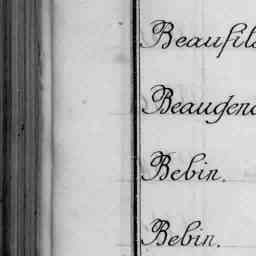 Beaufils
Beaugend
Bebin.
Bebin.